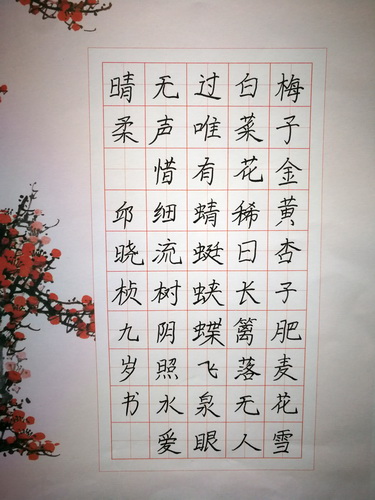 梅子金黄杏子肥麦花雪
白菜花稀日长篱落无人
过唯有蜻蜓蛱蝶飞泉眼
无声惜细流树阴照水爱
晴柔 邱晓桢九岁书